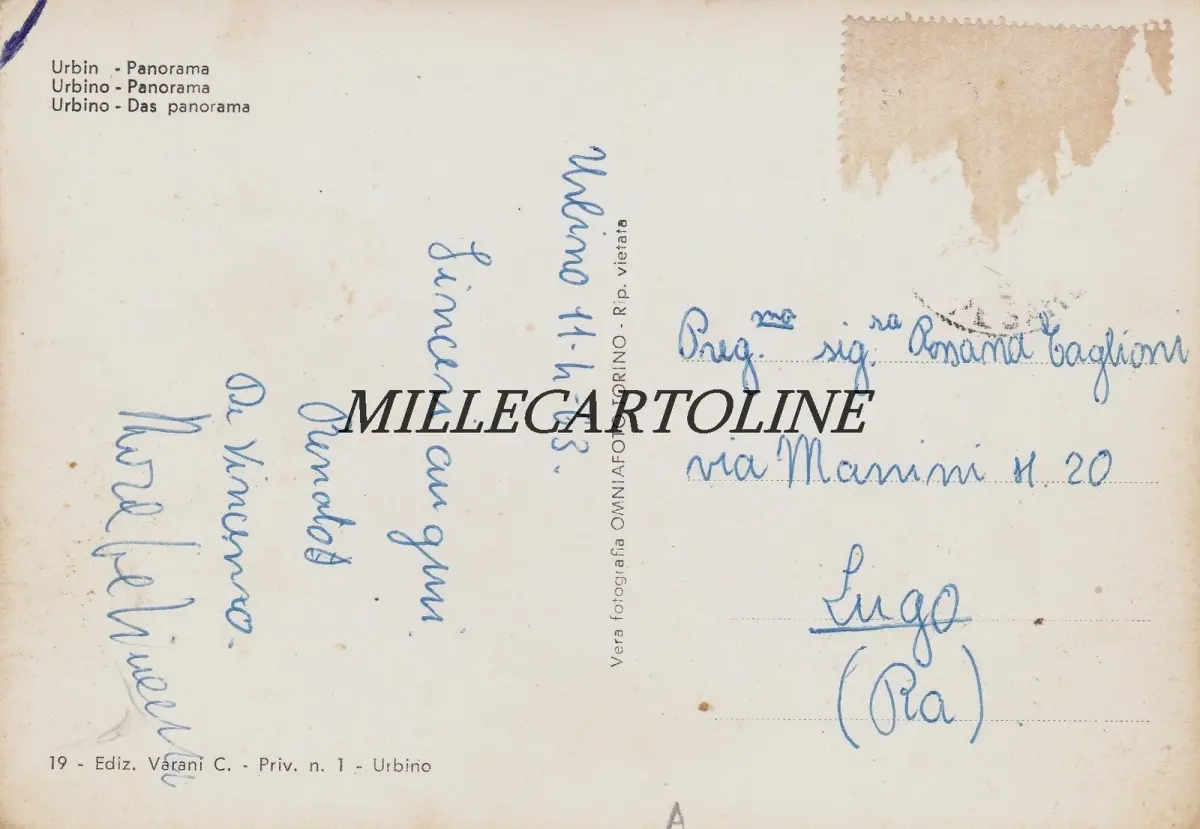 Urbin - Panorama
Urbino - Panorama
Urbino - Das panorama
Urbino 11-4-53.
Sinceri auguri
Renato
De Vincenzo.
Vera fotografia OMNIAFOTO TORINO - Rip. vietata
MILLECARTOLINE
Preg.ma sig.ra Rosanna Taglioni
via Manini N. 20
Lugo
(Ra).
19 - Ediz. Varani C. - Priv. n. 1 - Urbino
A